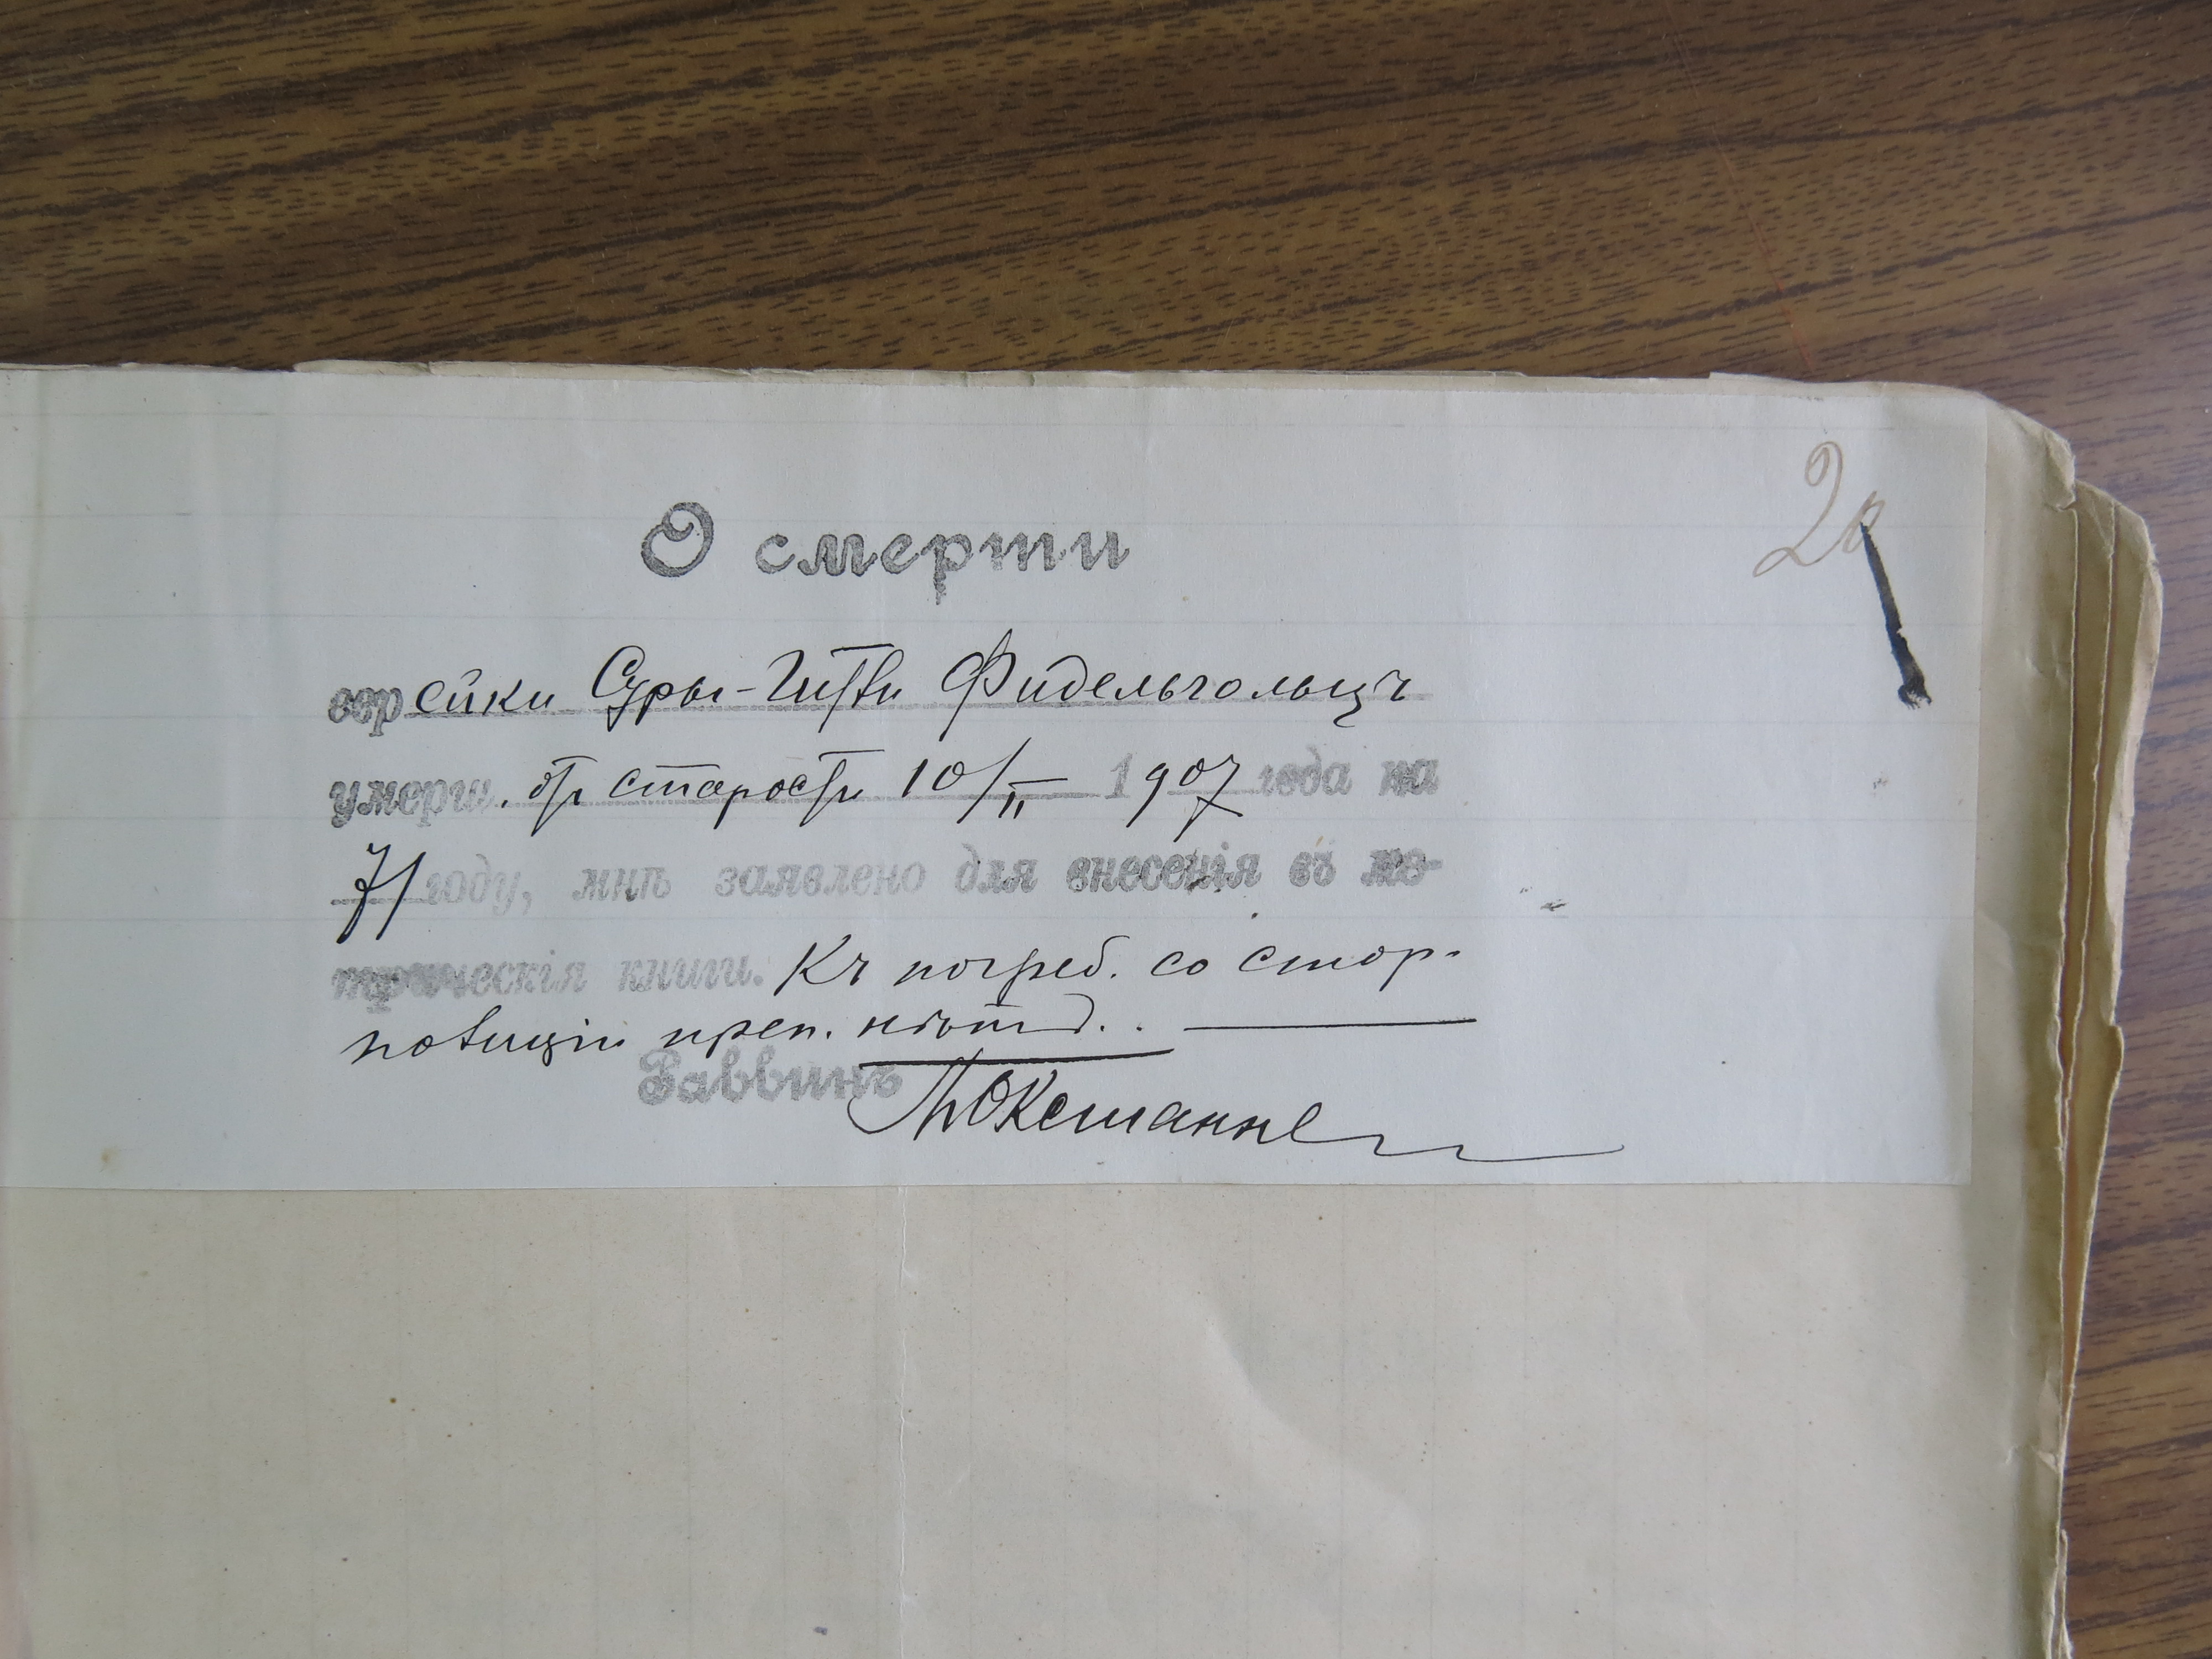 20
О смерти
еврейки Суры-Гитли Фидельгольцъ
умерш. отъ старости 10/II 1907 года на
71 году, мнѣ заявлено для внесенія въ ме-
трическія книги. Къ погреб. со стор.
полиціи преп. нѣтъ.
Раввинъ